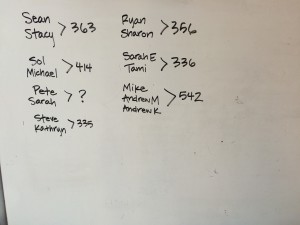 Sean
Stacy > 363
Sol
Michael > 414
Pete
Sarah > ?
Steve
Kathryn > 335
Ryan
Sharon > 356
Sarah E
Tami > 336
Mike
Andrew M > 542
Andrew K